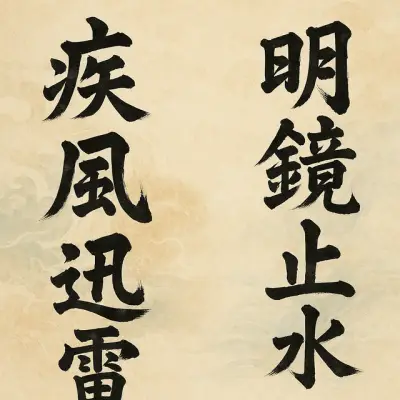 明鏡止水
疾風迅雷